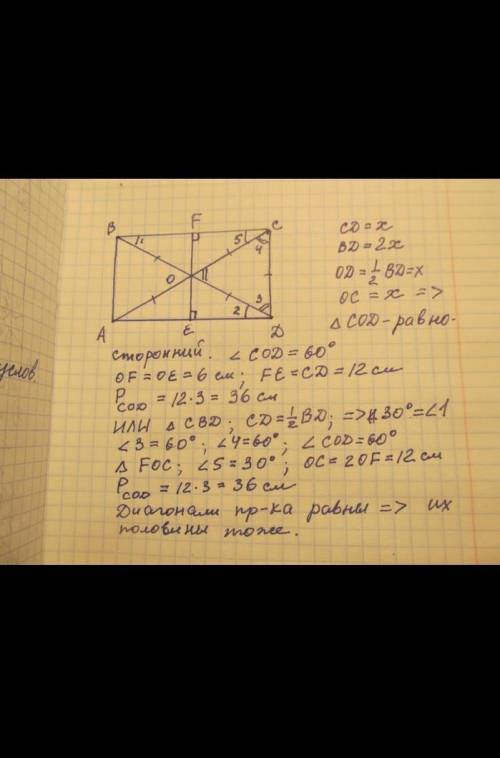 B 1 F 5 C
4
O
3
2
A E D
CD = x
BD = 2x
OD = 1/2 BD = x
OC = x =>
△ COD - равно-
услов.
сторонний. ∠ COD = 60°
OF = OE = 6 см; FE = CD = 12 см
P COD = 12 · 3 = 36 см
ИЛИ △ CBD; CD = 1/2 BD; => 30° = ∠1
∠3 = 60°; ∠4 = 60°; ∠ COD = 60°
△ FOC; ∠5 = 30°; OC = 2OF = 12 см
P COD = 12 · 3 = 36 см
Диагонали пр-ка равны => их
половины тоже.